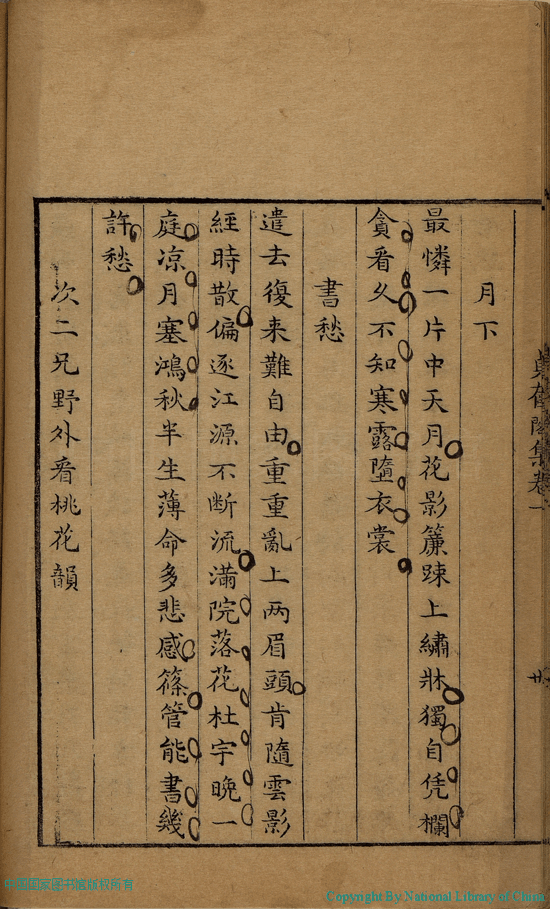 月下
最憐一片中天月花影簾踈上繡牀獨自凭欄
貪看久不知寒露墮衣裳
書愁
遣去復来難自由重重亂上两眉頭肯隨雲影
經時散偏逐江源不断流滿院落花杜宇晩一
庭凉月塞鴻秋半生薄命多悲感篠管能書幾
許愁
次二兄野外看桃花韻
中国国家图书馆版权所有
Copyright By National Library of China